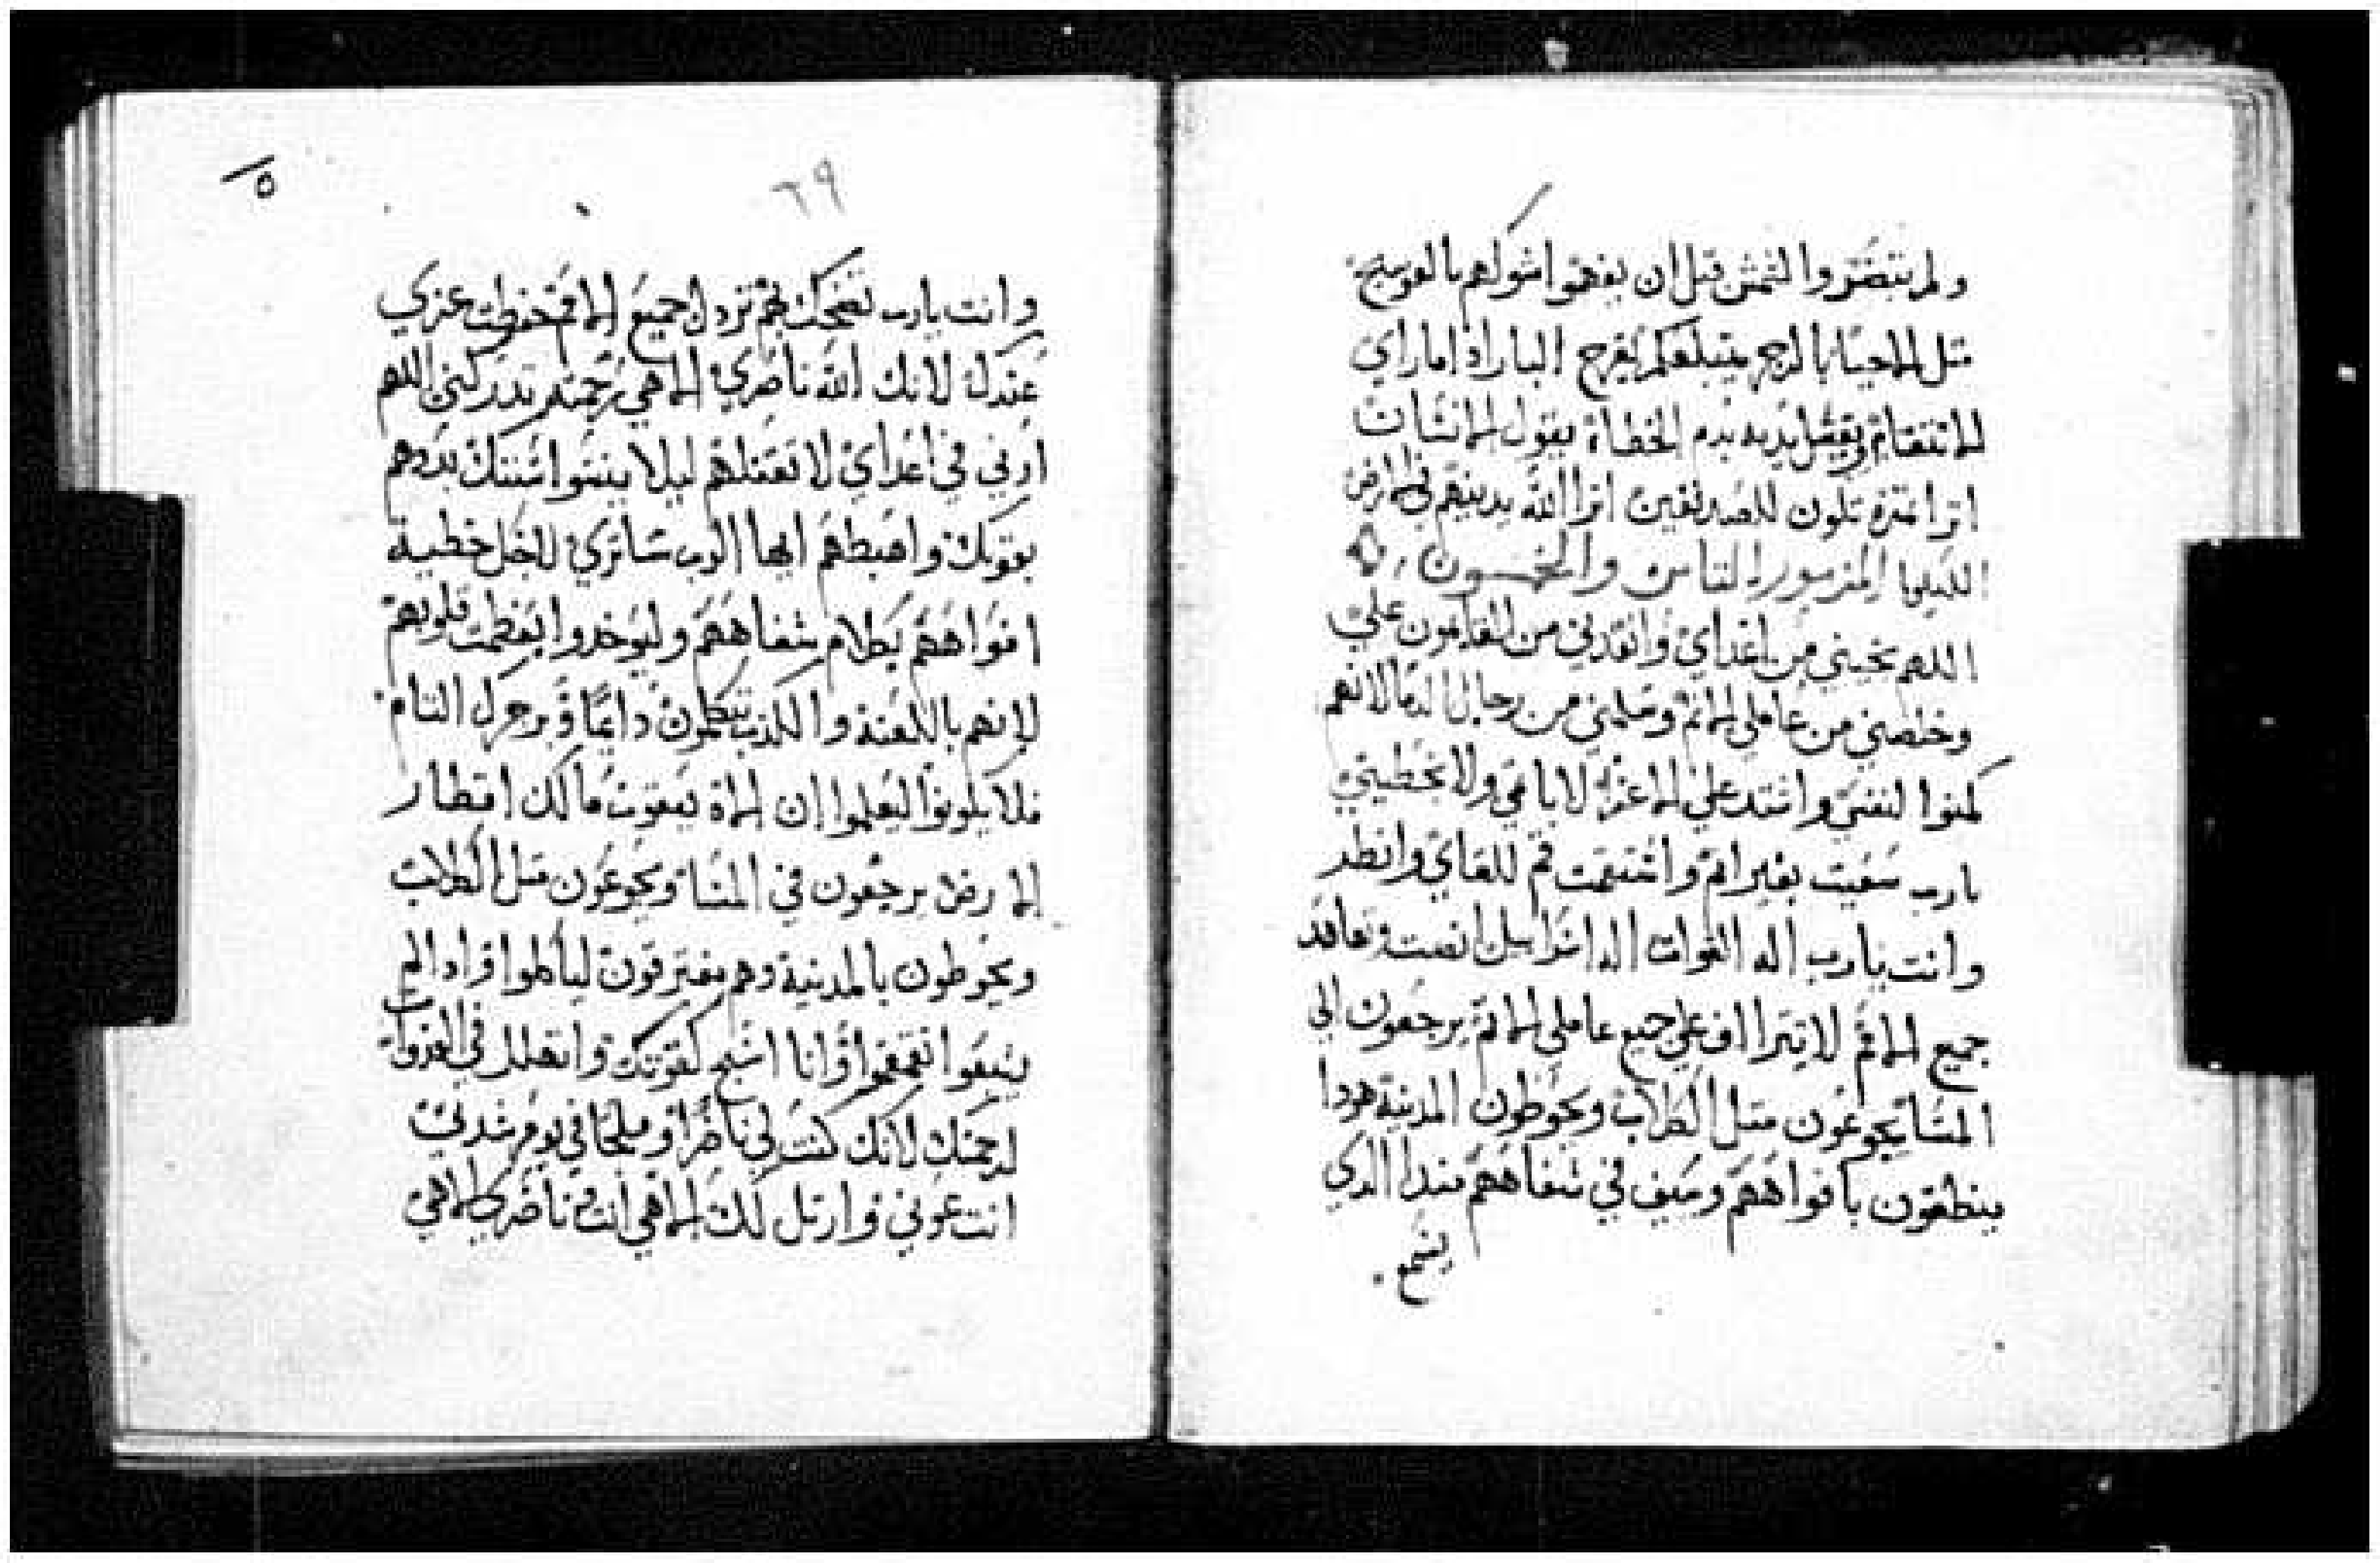 ولم يتبصروا الشمس قبل ان يفهموا شوكهم بالعوسج
مثل الاحيا بالرجم يبتلعكم يفرح البار اذا ما راي
الانتقام ويغسل يديه بدم الخطاة يقول الانسان
اترا ثمره تكون للصديقين اترا الله يدينهم في الارض
الليلويا المزمور الثامن والخمسون
اللهم نجيني من اعداي وانقدني من القايمون علي
وخلصني من عاملي الاثم وسلمني من رجال الدما لانهم
كمنوا لنفسي واشتد علي الاعزا لا باثمي ولا بخطيتي
يارب سعيت بغير اثم واستقمت قم للقاي وانظر
وانت يارب اله القوات اله اسرايل انصت وتعاقد
جميع الامم لا تترااف علي جميع عاملي الاثم يرجعون الي
المسا يجوعون متل الكلاب ويحوطون المدينة هودا
ينطقون بافواههم وسيف في شفاههم مندا الدي
يسمع
٦٩
وانت يارب تضحك بهم تزدل جميع الامم حفظت عزي
عندك لانك الله ناصري الاهي رحمته تدركني اللهم
ارني في اعداي لا تقتلهم ليلا ينسوا سننك بددهم
بقوتك واهبطهم ايها الرب ساتري لاجل خطية
افواههم بكلام شفاههم وليوخدوا بعظمت قلوبهم
لانهم باللعنة والكذب يتكلمون دايما وبرجزك التام
فلا يكونوا ليعلموا ان الاه يعقوب مالك اقطار
الارض يرجعون في المسا ويجوعون متل الكلاب
ويحوطون بالمدينة وهم يفترقون لياكلوا واد الم
يشبعوا تقمقموا وانا اسبح لقوتك واتهلل في الغدوات
لرحمتك لانك كنت لي ناصرا وملجا في يوم شدتي
انت عوني وارتل لك الاهي انت ناصري الاهي